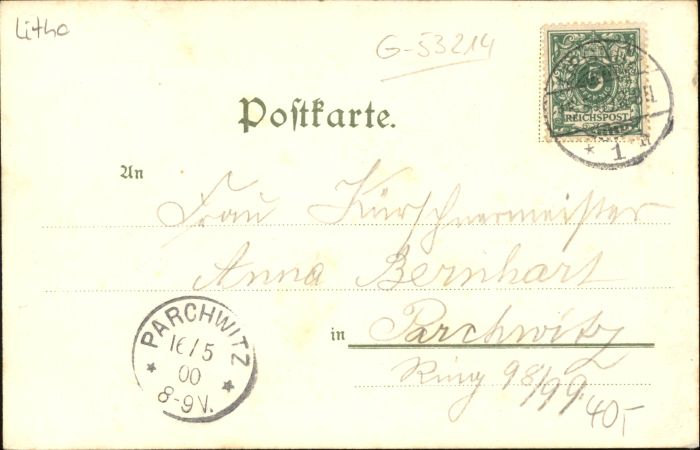 Litho
G-53214
5
REICHSPOST
* 1
Postkarte.
An
Frau Kürschnermeister
Anna Bernhart
in Parchwitz
Ring 98/99.
40,-
PARCHWITZ
16/5
00
8-9V.